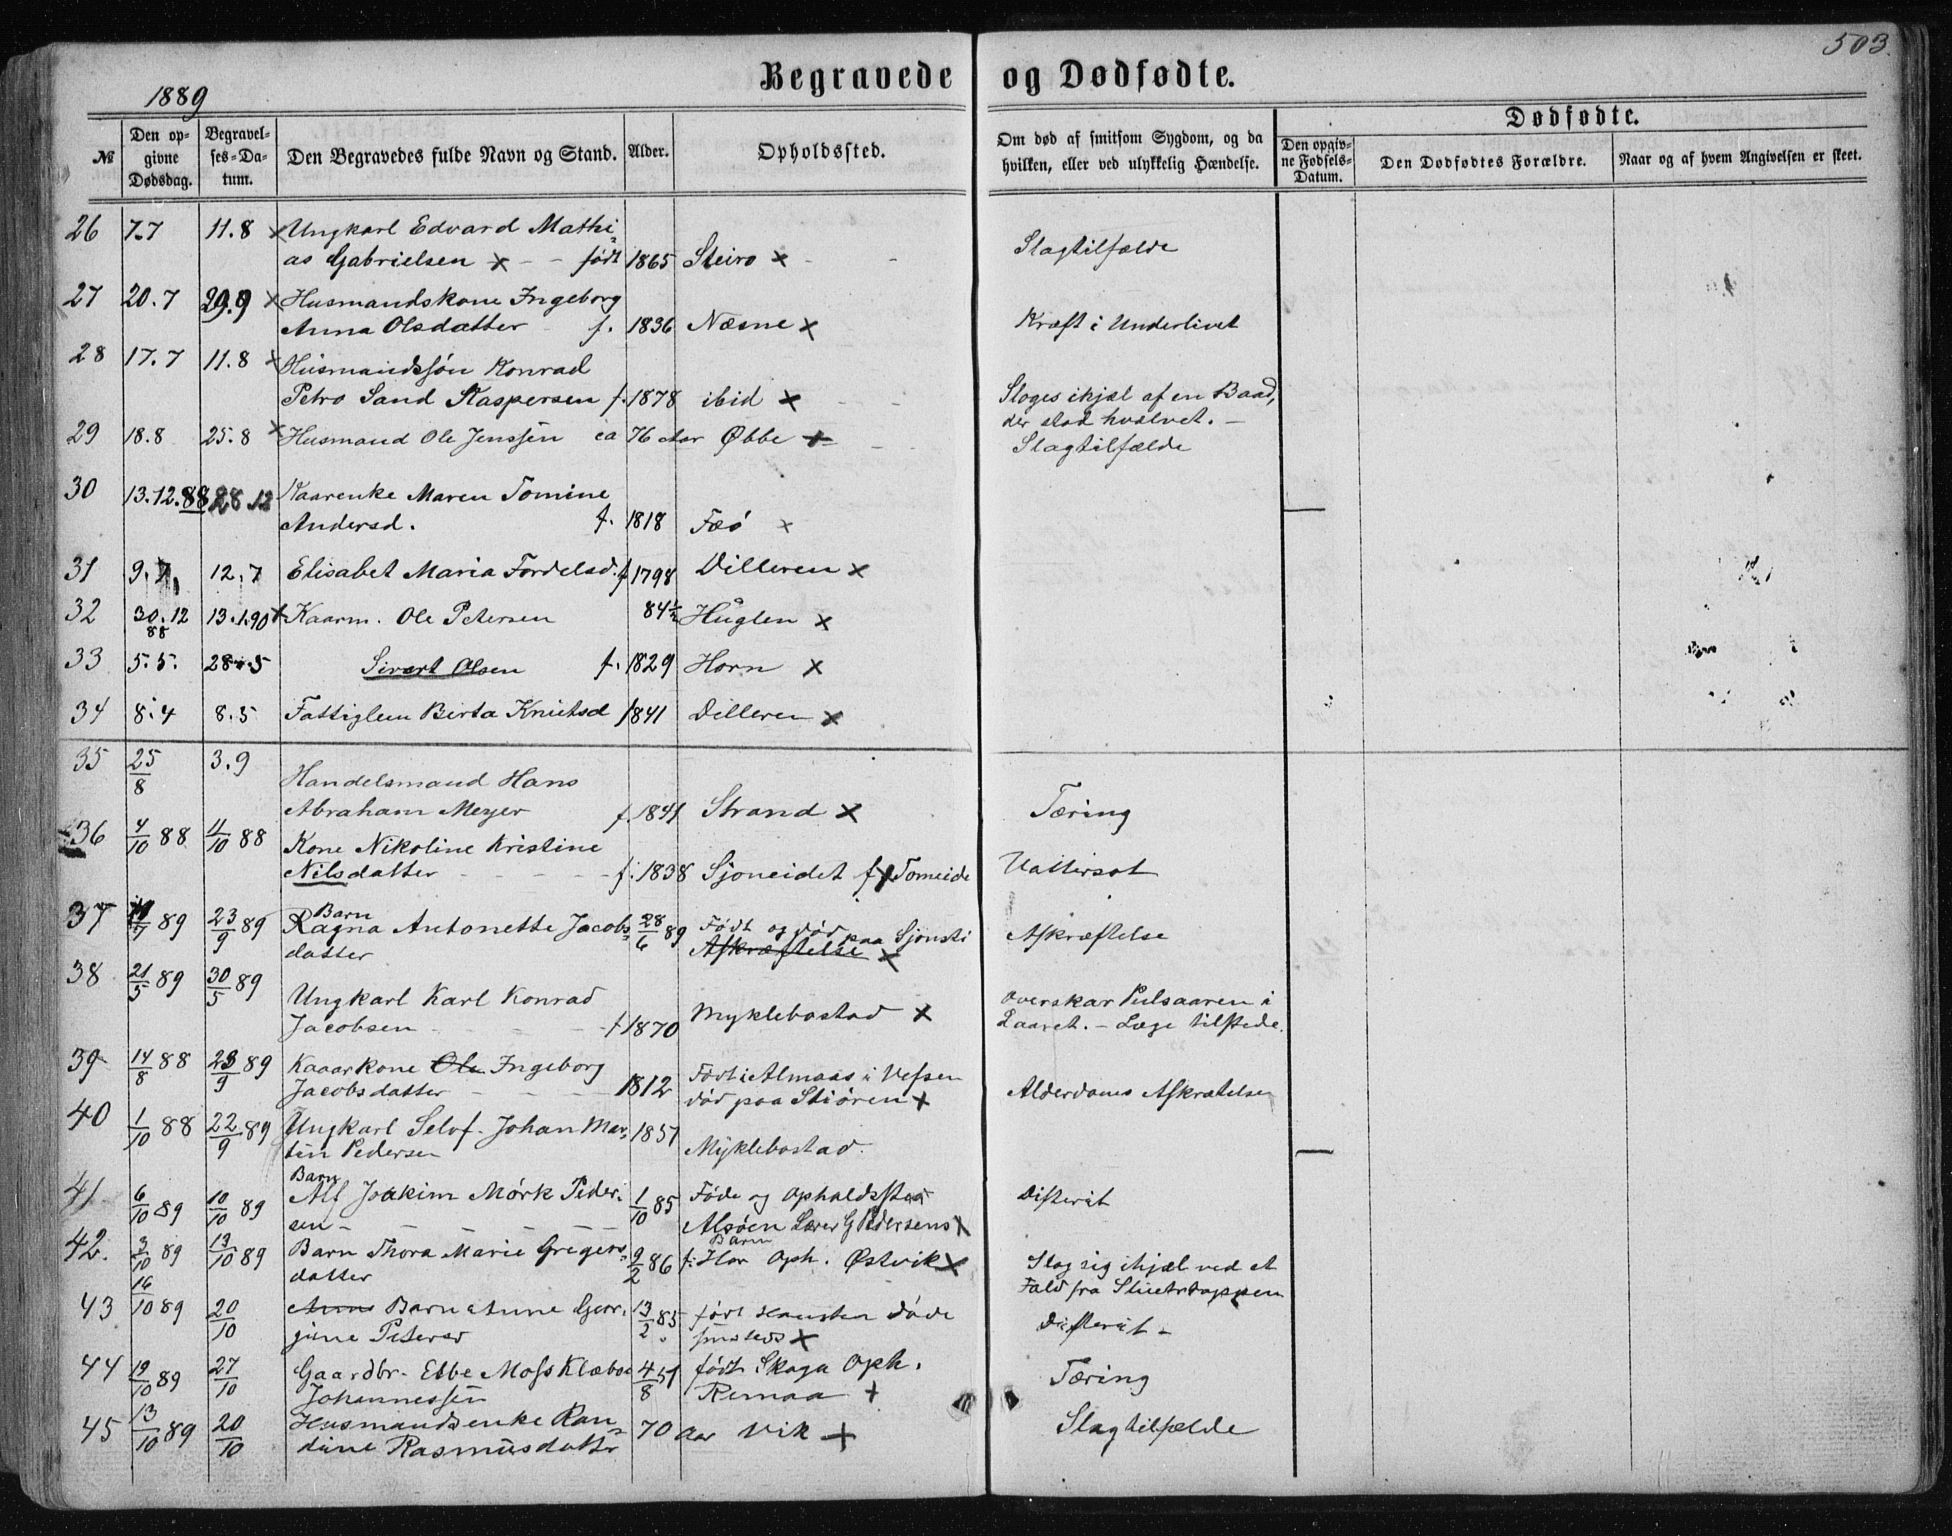 503.
Begravede og Dødfødte.
1889
Dødfødte.
№ Den opgivne Dødsdag. Begravelses-Datum. Den Begravedes fulde Navn og Stand. Alder. Opholdssted. Om død af smitsom Sygdom, og da hvilken, eller ved ulykkelig Hændelse. Den opgivne Fødsels-Datum. Den Dødfødtes Forældre. Naar og af hvem Angivelsen er skeet.
26 7.7 11.8 x Ungkarl Edvard Mathi-
as Gabrielsen x - - født 1865 Steiro x Slagtilfælde
27 20.7 29.9 x Husmandskone Ingeborg
Anna Olsdatter f. 1836 Næsne x Kræft i Underlivet
28 17.7 11.8 x Husmandssøn Konrad
Petro Sand Kaspersen f. 1878 ibid x Sloges ihjæl af en Baad,
der stod hvælvet. -
29 18.8 25.8 x Husmand Ole Jenssen ca 76 Aar Øbbe x Slagtilfælde
30 13.12.88 28.12 Kaarenke Maren Tomine
Andersd. f. 1818 Fæø x
31 9.7 12.7 Elisabet Maria Fordelsd. f 1798 Dilleren x
32 30.12 88 13.1.90 x Kaarm. Ole Petersen 84½ Huglen x
33 5.5. 28.5 Sivert Olsen f. 1829 Horn x
34 8.4 8.5 Fattiglem Berta Knutsd 1841 Dilleren x
35 25/8 3.9 Handelsmand Hans
Abraham Meyer f. 1841 Strand x Tæring
36 4/10 88 11/10 88 Kone Nikoline Kristine
Nilsdatter - - - f. 1838 Sjoneidet f x Tomeide Vattersot
37 89 23/9 89 Barn
Ragna Antonette Jacobs- 28/6 89 Født og død paa Sjonsti Afkræftelse
datter Afkræftelse x
38 21/5 89 30/5 89 Ungkarl Karl Konrad
Jacobsen - - - f 1870 Myklebostad x Overskar Pulsaaren i
Laaret. - Læge tilstede.
39 14/8 88 23/9 89 Kaarkone Ole Ingeborg
Jacobsdatter - - - 1812 Født i Almaas i Vefsen
død paa Stiøren x Alderdoms Afkrætelse
40 1/10 88 22/9 89 Ungkarl Selvf. Johan Mar-
tin Pedersen 1857 Myklebostad.
41 6/10 89 10/10 89 Barn
Alf Joakim Mørk Peder- 1/10 85 Føde og Opholdssted Difterit
sen - - - Alsøen Lærer G Pedersens x
Barn
42. 3/10 89 13/10 89 Barn Thora Marie Gregers- 9/2 86 f: Hor Oph. Østvik x Slog sig ihjæl ved et
datter Fald fra Stuetrappen
43 16/10 89 20/10 Anne Barn Anne Geor- 13/2 85 født Hansten døde
gine Petersd x Difterit -
44 19/10 89 27/10 Gaardbr. Ebbe Moss Klæboe 4/8 51 født Skaga Oph.
Johannessen Remaa + Tæring
45 13/10 89 20/10 Husmandsenke Ran-
dine Rasmusdattr 70 Aar Vik + Slagtilfælde